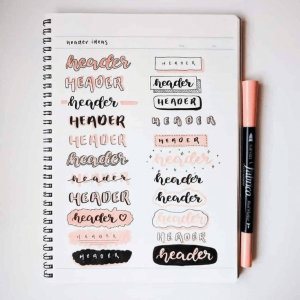 header ideas
header
HEADER
header
HEADER
HEADER
header
header
HEADER
header
HEADER
HEADER
HEADER
HEADER
HEADER
HEADER
HEADER
header
header
header
header
HEADER
header